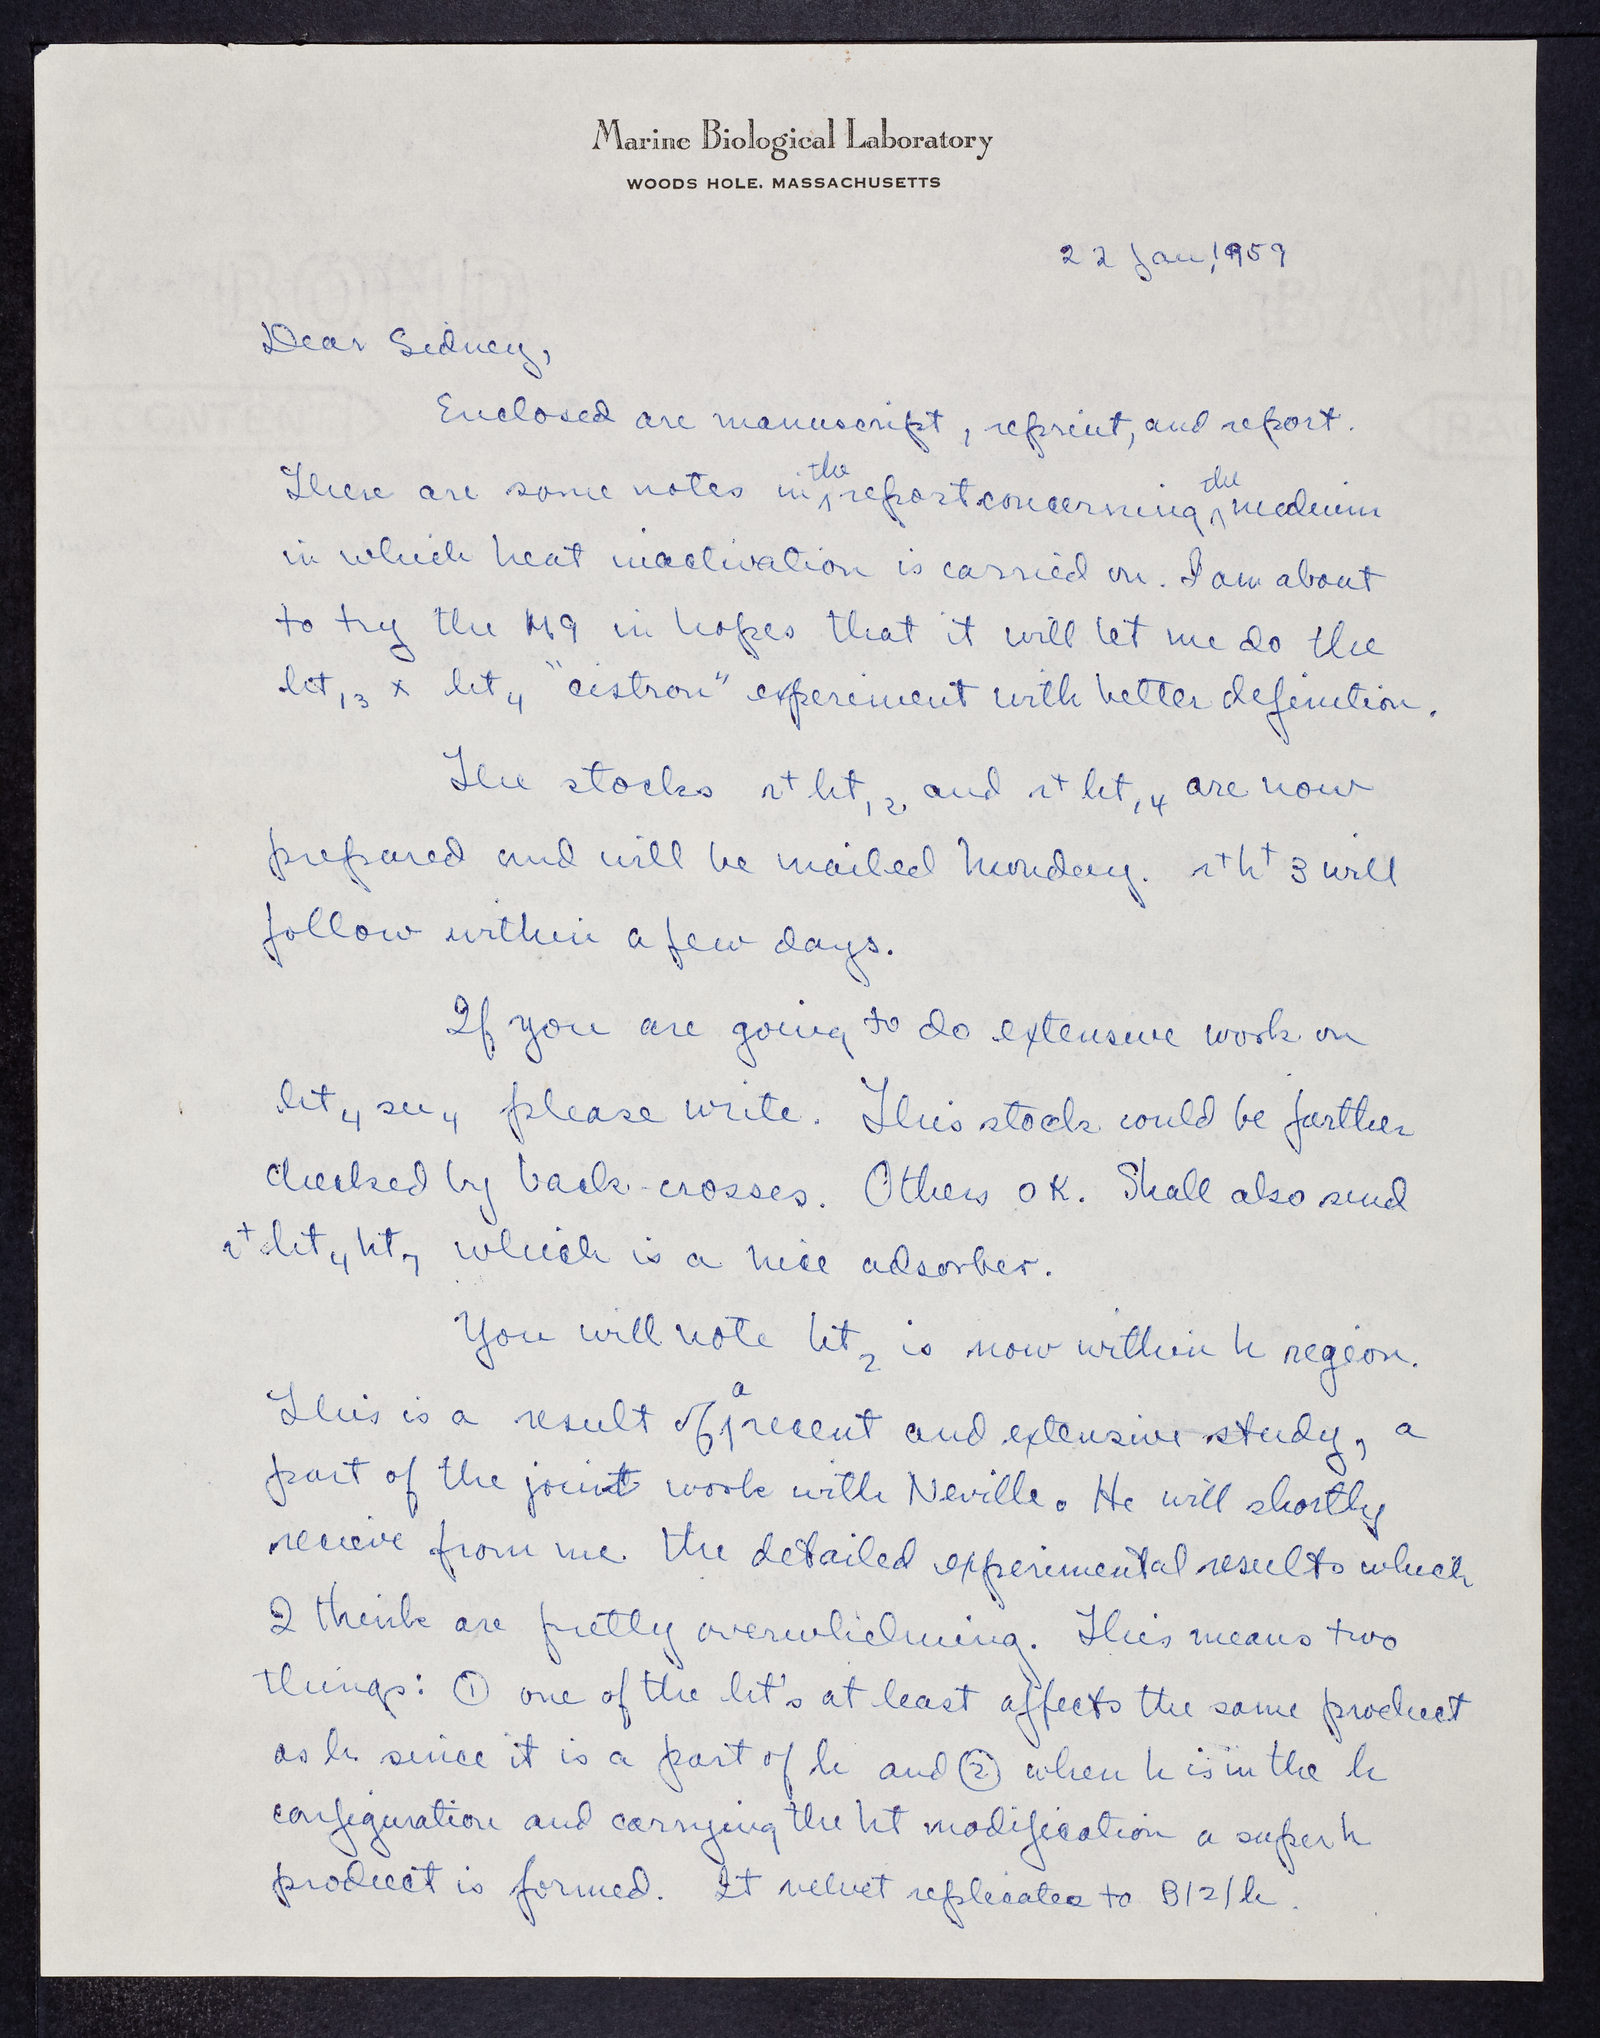 Marine Biological Laboratory
WOODS HOLE, MASSACHUSETTS
22 Jan, 1959
Dear Sidney,
Enclosed are manuscript, reprint, and report.
There are some notes in the report concerning the medium
in which heat inactivation is carried on. I am about
to try the M9 in hopes that it will let me do the
ht₁₃ x ht₄ "cistron" experiment with better definition.
The stocks r⁺ ht₁₂ and r⁺ ht₁₄ are now
prepared and will be mailed Monday. r⁺h⁺3 will
follow within a few days.
If you are going to do extensive work on
ht₄ su₄ please write. This stock could be further
checked by back-crosses. Others OK. Shall also send
r⁺ ht₄ ht₇ which is a nice adsorber.
You will note ht₂ is now within h region.
This is a result of a recent and extensive study, a
part of the joint work with Neville. He will shortly
recieve from me the detailed experimental results which
I think are pretty overwhelming. This means two
things: ① one of the ht's at least affects the same product
as h since it is a part of h and ② when h is in the h
configuration and carrying the ht modification a super h
product is formed. It velvet replicates to B/2/h.